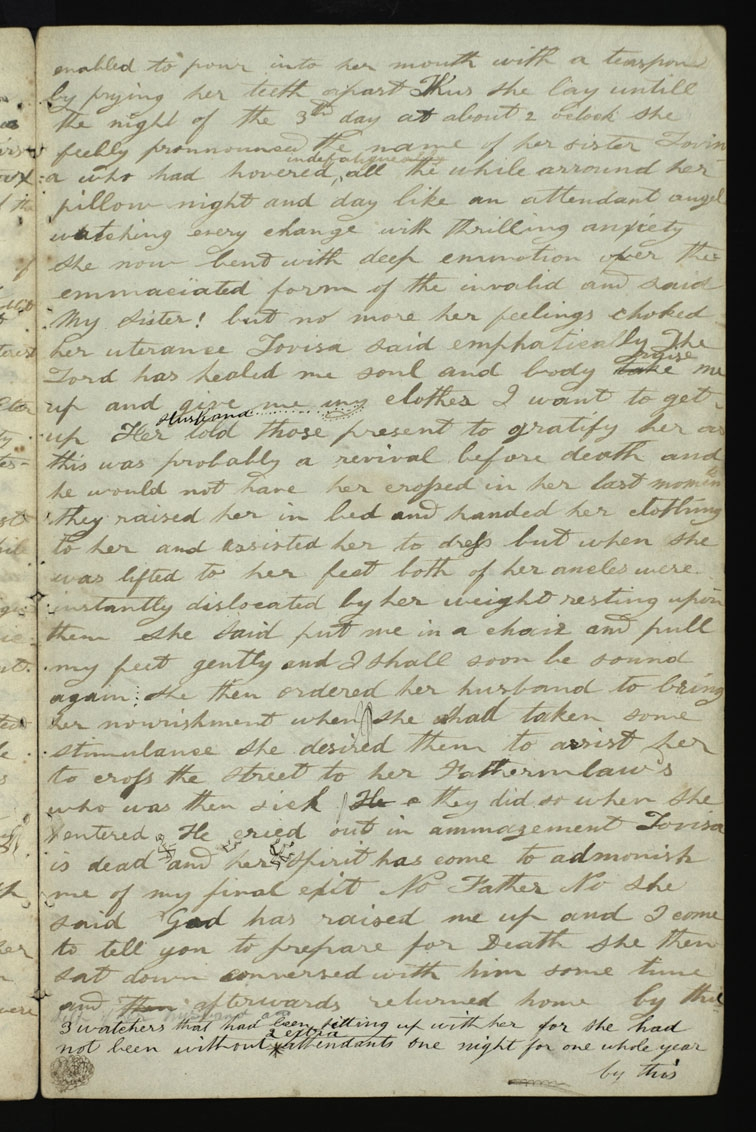 enabled to pour into her mouth with a teaspoon
by prying her teeth apart Thus she lay untill
the night of the 3rd day at about 2 oclock she
feebly pronnounced the name of her sister Lovin
indefatigueably
a who had hovered, all the while arround her
pillow night and day like an attendant angel
watching every change with thrilling anxiety
she now bent with deep emmotion over the
emmaciated form of the invalid and said
My sister! but no more her feelings choked
her uterance Lovisa said emphatically The
raise
Lord has healed me soul and body take me
up and give me my clothes I want to get
Husband
up Her told those present to gratify her as
this was probably a revival before death and
he would not have her crossed in her last moments
they raised her in bed and handed her clothing
to her and assisted her to dress but when she
was lifted to her feet both of her ancles were
instantly dislocated by her weight resting upon
them she said put me in a chair and pull
my feet gently and I shall soon be sound
again she then ordered her husband to bring
her nourishment when she had taken some
stimulance she desired them to assist her
to cross the street to her Fatherinlaws
who was then sick He they did so when she
entered He cried out in ammazement Lovisa
is dead and her spirit has come to admonish
me of my final exit No Father No she
said God has raised me up and I come
to tell you to prepare for Death she then
sat down conversed with him some time
and then afterwards returned home by the
3 watchers that had been sitting up with her for she had
2 extra
not been without attendants one night for one whole year
by this